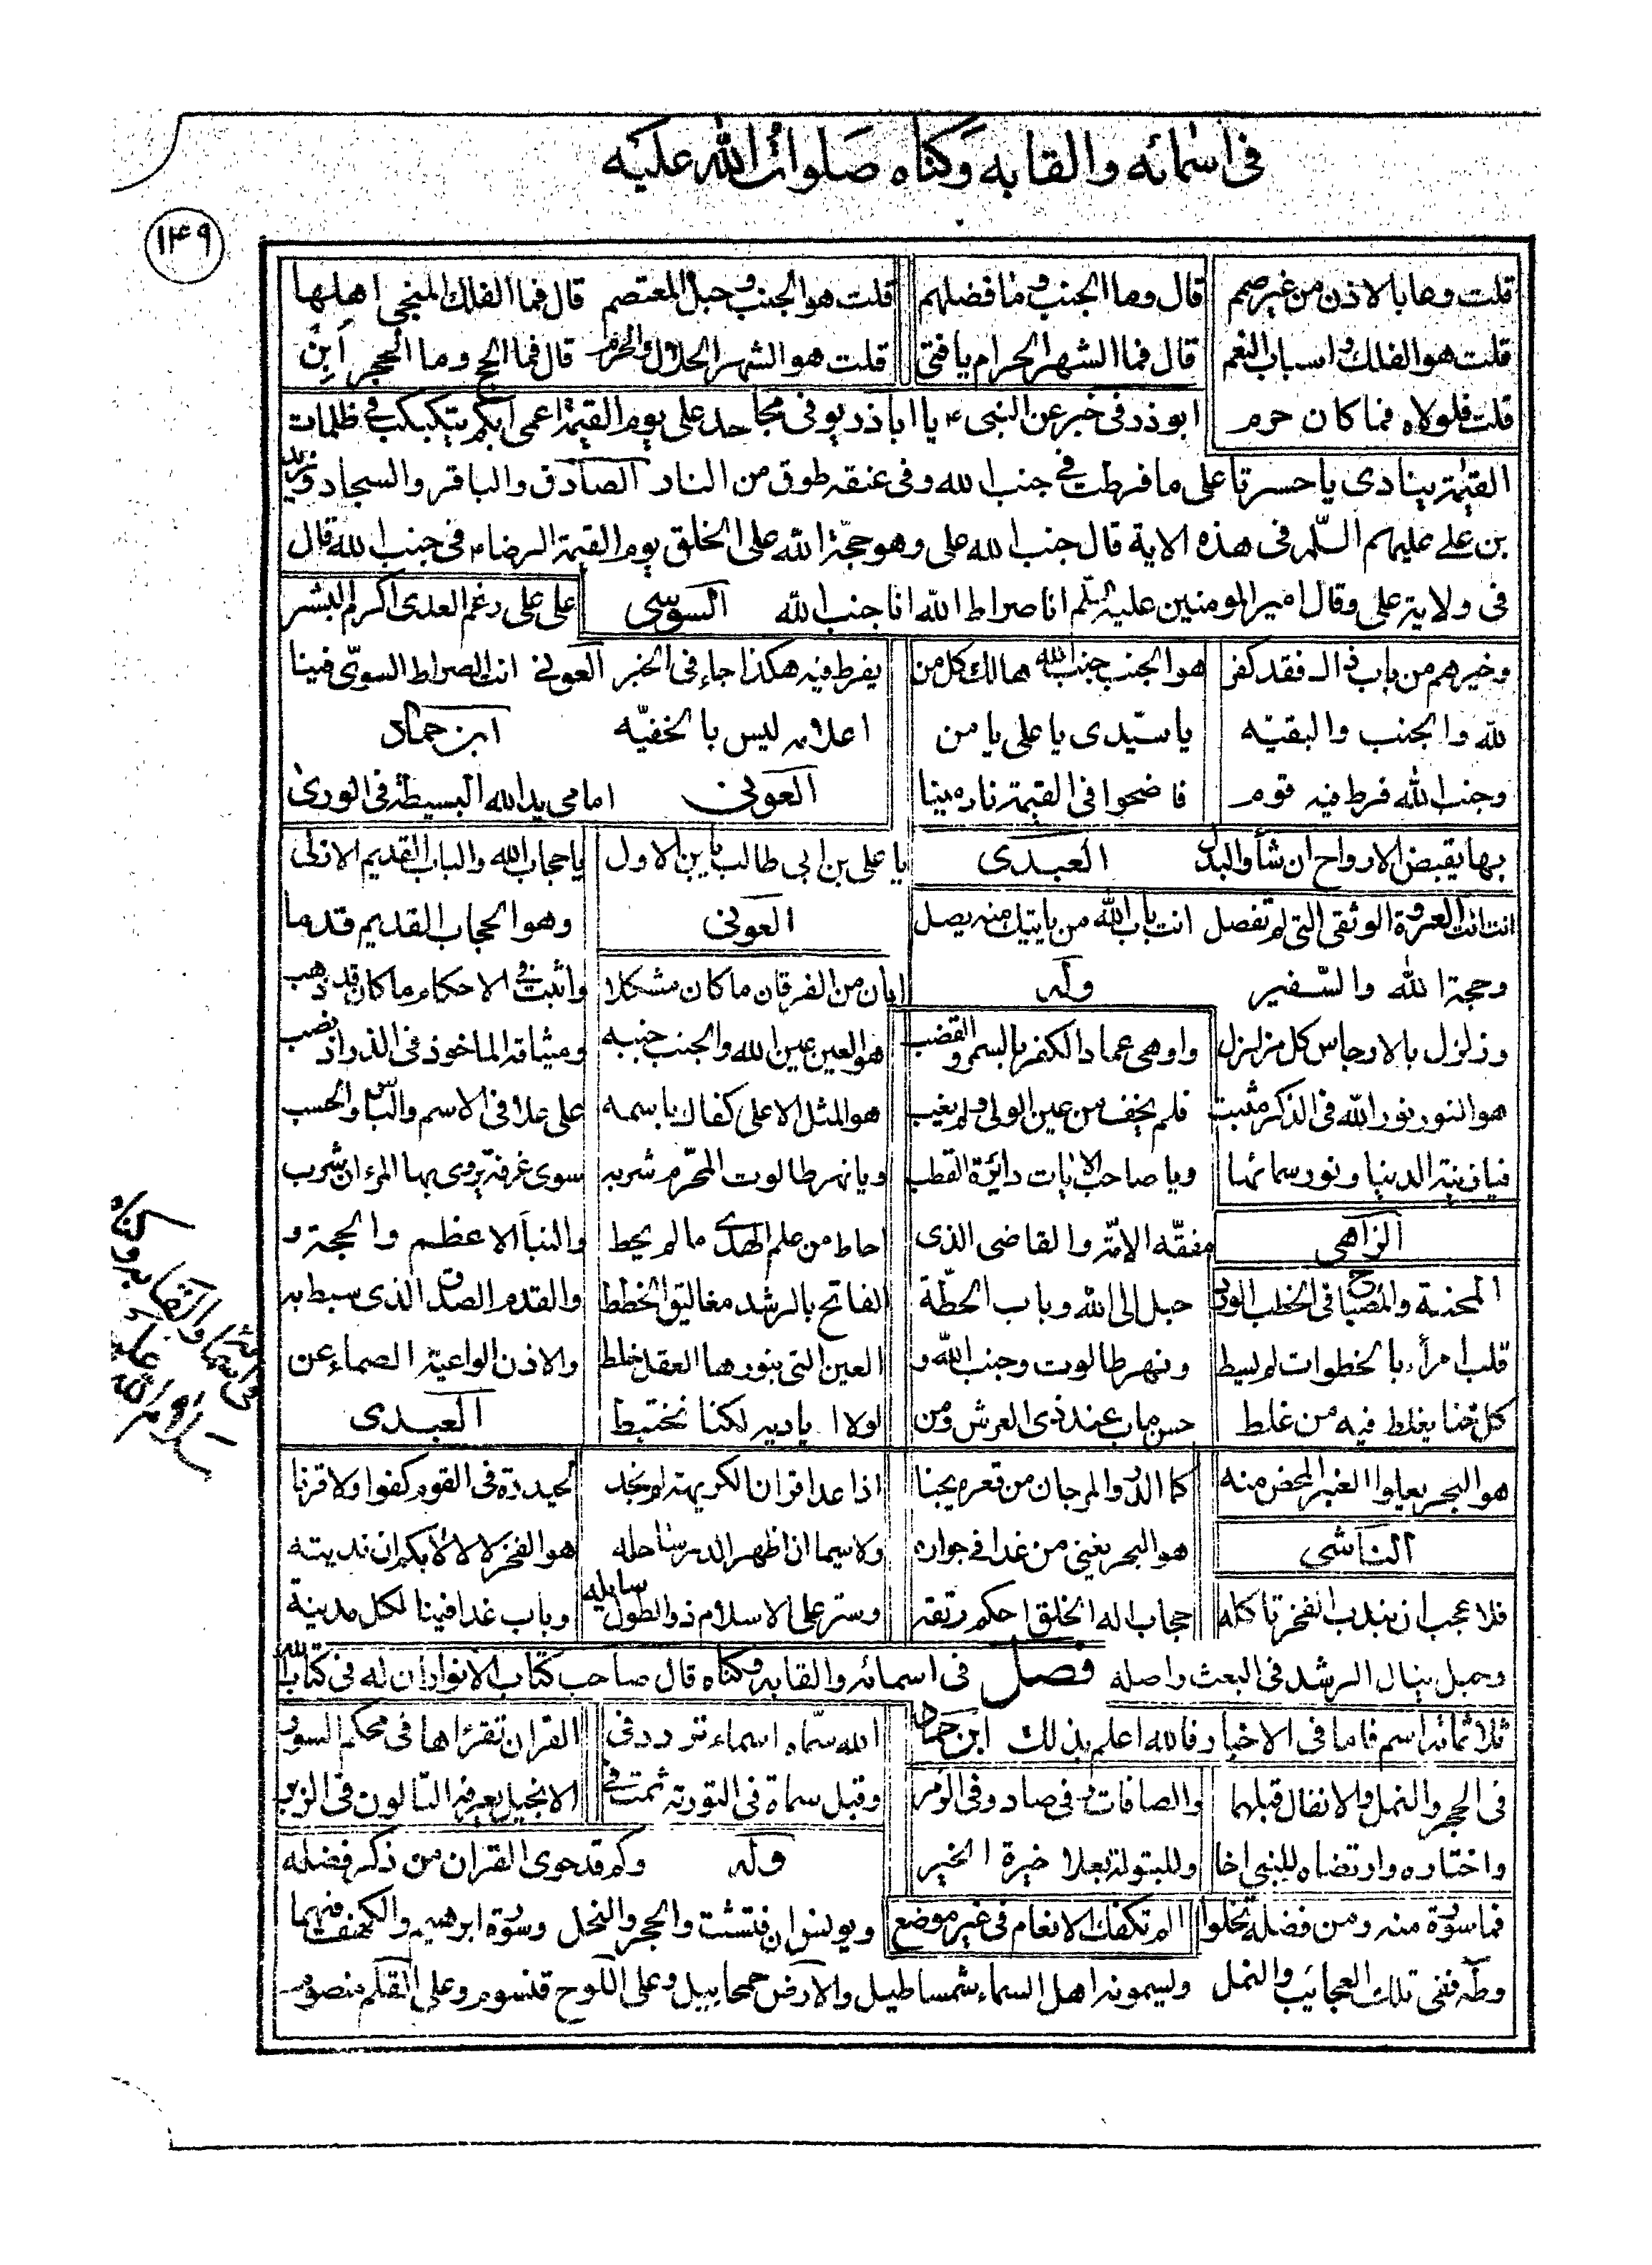 في اسمائه والقابه وكناه صلوات الله عليه
١٤٩
قلت وها بالاذن من غير صمم قال وما الجنب وما فضلهم قلت هو الجنب وحبل المعتصم قال فما الفلك المنجي اهلها
قلت هو الفلك واسباب النعم قال فما الشهر الحرام يا فتى قلت هو الشهر الحلال والحرم قال فما الحج وما الحجر ابن
قلت فلولاه فما كان حرم ابوذر في خبر عن النبي ع يا اباذر يوفى مجاحد علي يوم القيمة اعمى ابكم يتكبكب في ظلمات
القيمة ينادى يا حسرتا على ما فرطت في جنب الله وفي عنقه طوق من النار الصادق والباقر والسجاد وزيد
بن علي عليهم السلم في هذه الاية قال جنب الله علي وهو حجة الله على الخلق يوم القيمة الرضا ع في جنب الله قال
في ولاية علي وقال امير المومنين عليه السلم انا صراط الله انا جنب الله السوسي علي على رغم العدى اكرم البشر
وخيرهم من باب ذاك فقد كفر هو الجنب جنب الله هالك كل من يفرط فيه هكذا جاء في الخبر العوني انت الصراط السوي فينا
لله والجنب والبقيه يا سيدى يا علي يا من اعلامه ليس بالخفيه ابن حماد
وجنب الله فرط فيه قوم فاضحوا في القيمة نادمينا العوني امامي يد الله البسيطة في الورى
بها يقبض الارواح ان شاء والبدل العبدى يا علي بن ابي طالب يا بن الاول يا حجاب الله والباب القديم الازلى
انت انت العروة الوثقى التي لم تفصل انت باب الله من ياتيك منه يصل العوني وهو الحجاب القديم قدما
وحجة الله والسفير وله ابان من الفرقان ما كان مشكلا واثبت في الاحكام ما كان قد ذهب
وزلزل بالارجاس كل مزلزل واوهى عماد الكفر بالسمر والقضب هو العين عين الله والجنب جنبه وميثاقه الماخوذ في الذر اذ نصب
هو النور نور الله في الذكر مثبت فلم يخف من عين الولي ولم يغيب هو المثل الاعلى كفاك باسمه علي علا في الاسم والباس والحسب
فيا زينة الدنيا ونور سمائها ويا صاحب الاثبات دائرة القطب ويا نهر طالوت المحرم شربه سوى غرفة يروى بها المرء ان شرب
الزاهي مفقه الامة والقاضى الذى احاط من علم الهدى ما لم يحط والنبأ الاعظم والحجة و
المحنة والمصباح في الخطب حبل الى الله وباب الحطة الفاتح بالرشد مغاليق الخطط والقدم الصدق الذى سيط به
قلب امرأ بالخطوات لم يسط ونهر طالوت وجنب الله و العين التي بنورها العقد خلط والاذن الواعية الصماء عن
كل خنا يغلط فيه من غلط حسن ماب عند ذى العرش ومن لولا اياديه لكنا نختبط العبدى
هو البحر يعلوا العنبر المحض منه كما الدر والمرجان من قعره يجنا اذا عد اقران الكريهة لم نجد لحيدرة في القوم كفوا ولا قرنا
الناشي هو البحر يغني من غدا في جواره ولاسيما ان اظهر الدر ساحله هو الفخر لا ان نديته
فلا عجب ان يندب الفخر ثاكله حجاب اله الخلق احكم رتقه وستر على الاسلام ذو الطول سابله وباب غدا فينا لكل مدينة
وحبل ينال الرشد في البعث واصله فصل في اسمائه والقابه وكناه قال صاحب كتاب الانوار ان له في كتاب الله
ثلاثمائة اسم فاما في الاخبار فالله اعلم بذلك ابن حماد الله سماه اسماء تردد في القران تقرؤاها في محكم السور
في الحجر والنمل والانفال قبلهما والصافات وفي صاد وفي الزمر وقبل سماه في التورية ثمت في الانجيل يعرفه التالون في الزبر
واختاره وارتضاه للنبي اخا وللبتولة بعلا خيرة الخير وله وكم قد حوى القران من ذكر فضله
فما سورة منه ومن فضله تخلوا الم تكفك الانعام في غير موضع ويونس ان فتشت والحجر والنحل وسورة ابرهيم والكهف فيهما
وطه ففي تلك العجائب والنمل وليسمونه اهل السماء شمساطيل والارض جمحابيل وعلى اللوح قنسوم وعلى القلم منصوم